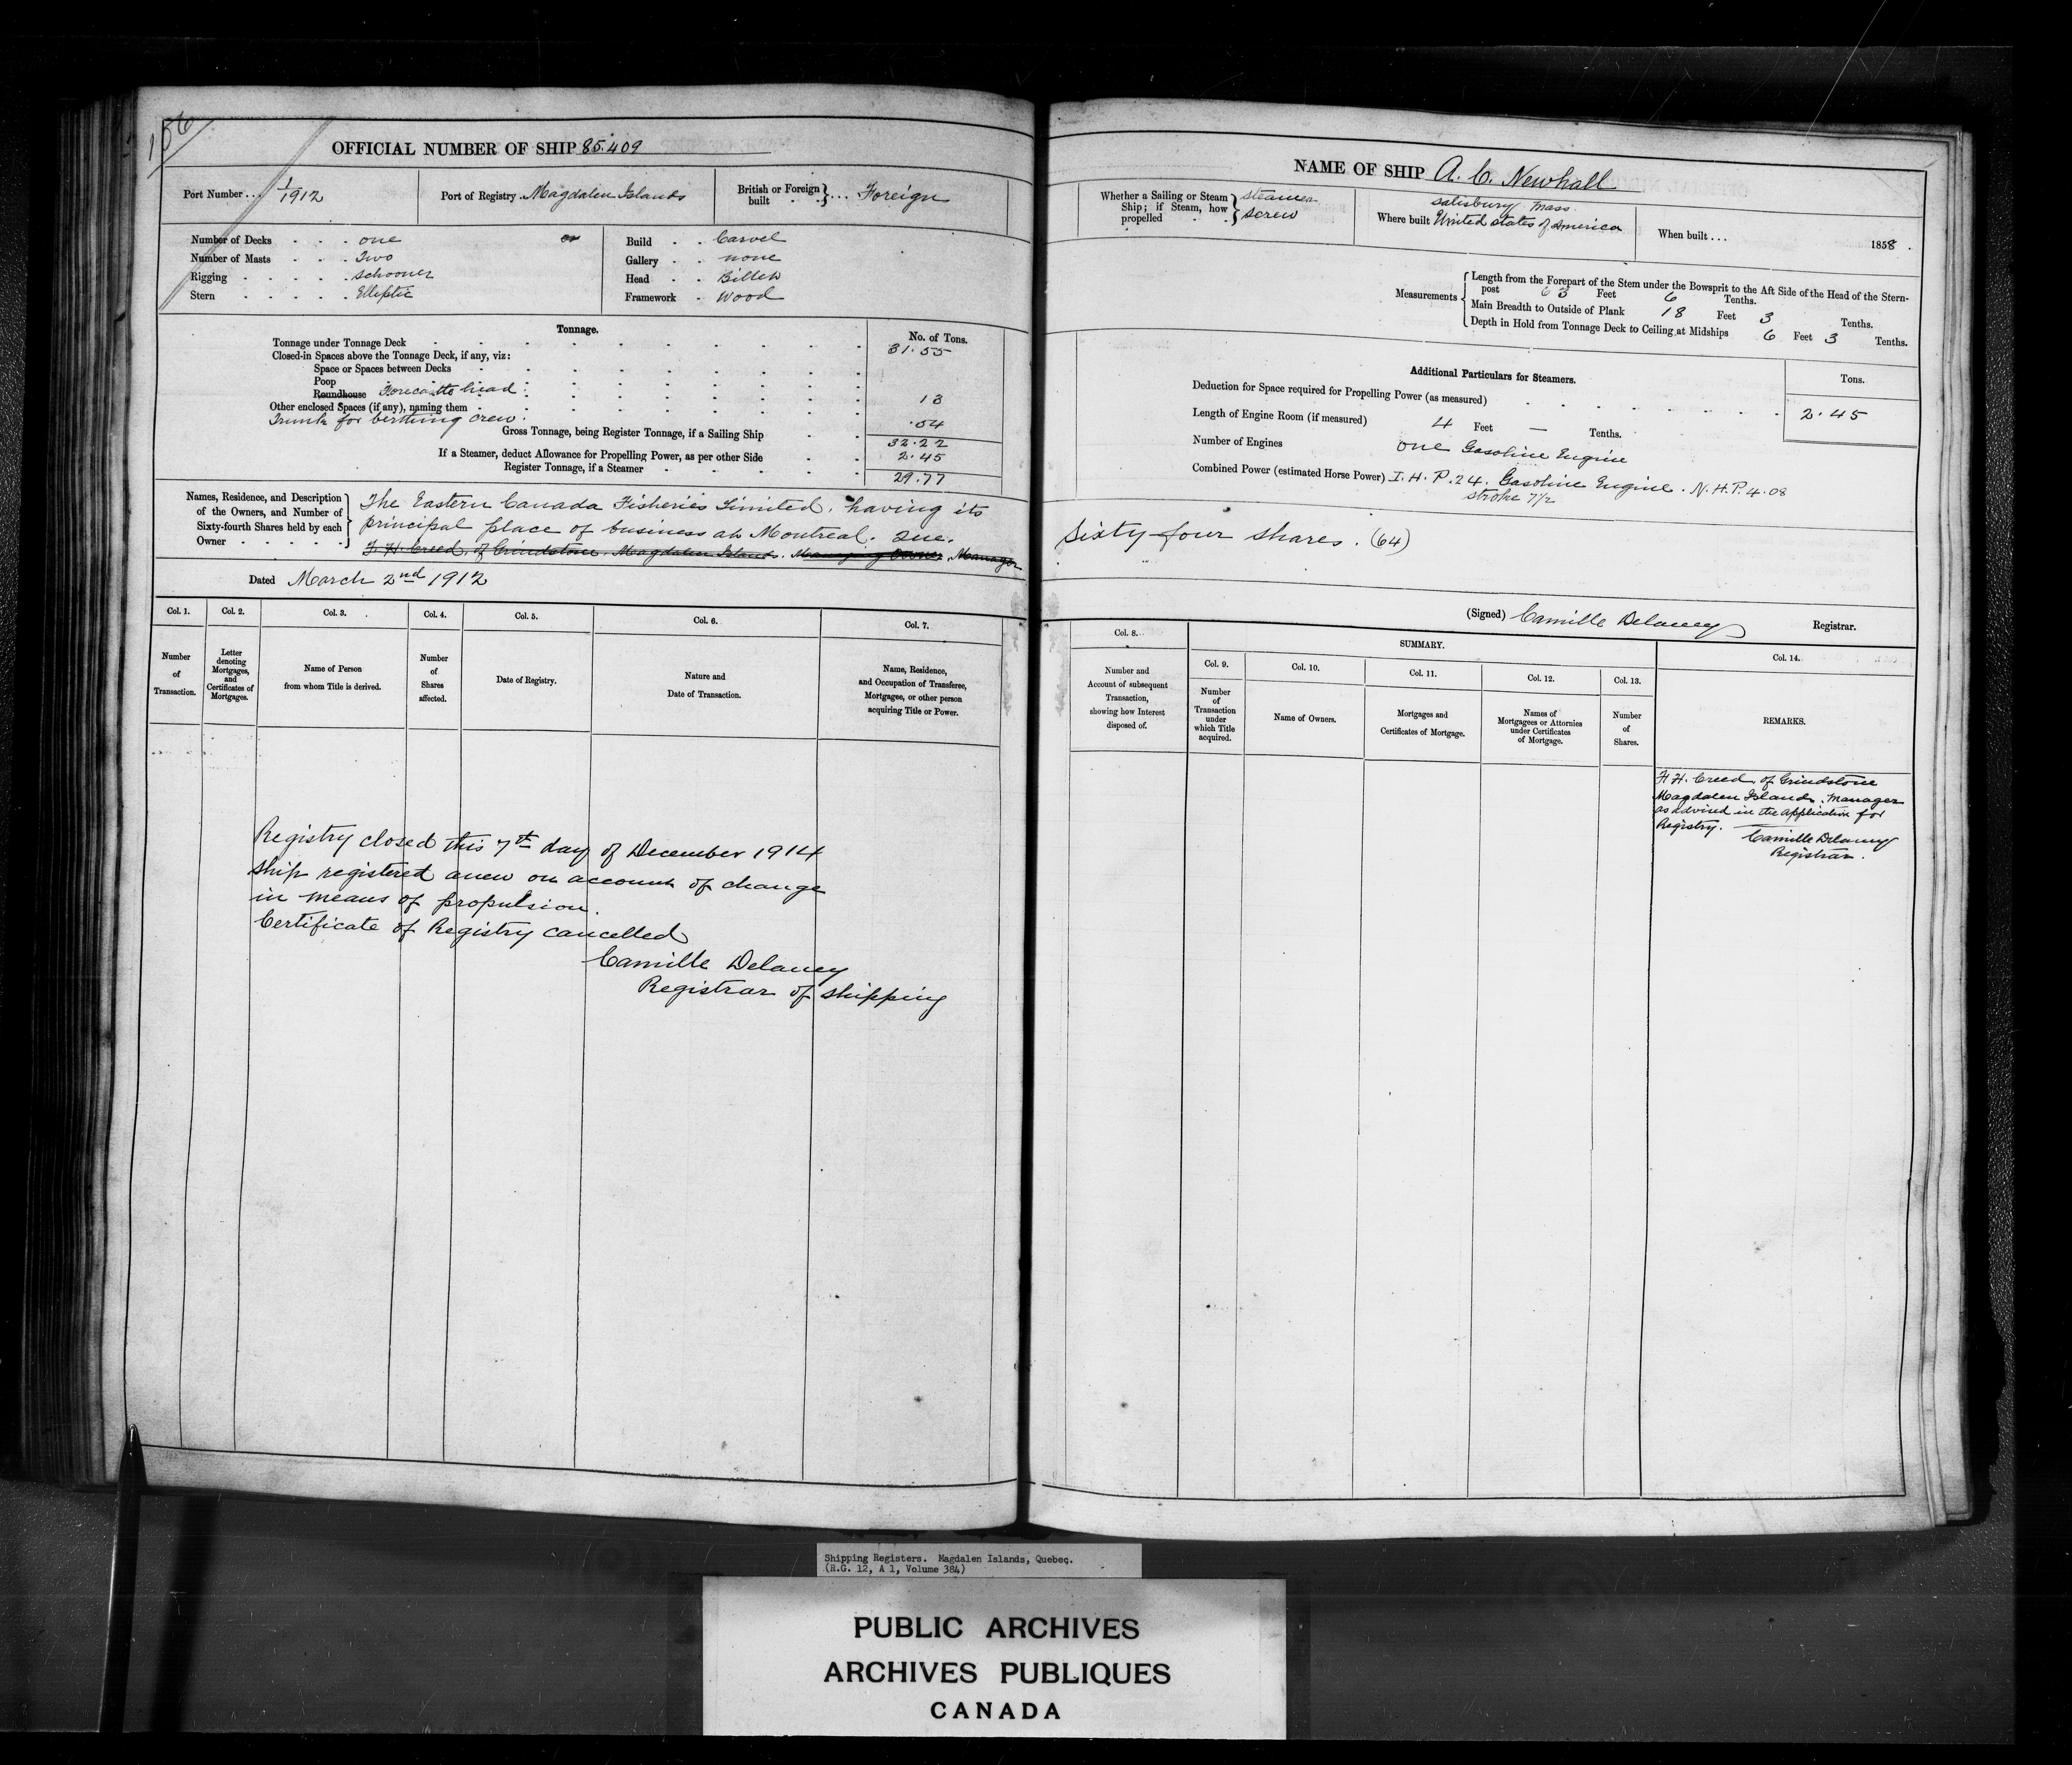 156
OFFICIAL NUMBER OF SHIP 85.409
Port Number ... 1/1912
Port of Registry Magdalen Islands
British or Foreign built ... Foreign
Number of Decks . . . one
Number of Masts . . . Two
Rigging . . . . . schooner
Stern . . . . . Elliptic
Build . . Carvel
Gallery . . none
Head . . Billet
Framework . Wood
Tonnage.
No. of Tons.
Tonnage under Tonnage Deck 31.55
Closed-in Spaces above the Tonnage Deck, if any, viz:
Space or Spaces between Decks
Poop
Roundhouse Forecastle head 13
Other enclosed Spaces (if any), naming them
Trunk for berthing crew .54
Gross Tonnage, being Register Tonnage, if a Sailing Ship 32.22
If a Steamer, deduct Allowance for Propelling Power, as per other Side 2.45
Register Tonnage, if a Steamer 29.77
Names, Residence, and Description
of the Owners, and Number of
Sixty-fourth Shares held by each
Owner . . . . .
The Eastern Canada Fisheries Limited, having its
principal place of business at Montreal. Que.
F. H. Creed, of Grindstone, Magdalen Islands. Managing Owner Manager
Dated March 2nd 1912
Col. 1. Col. 2. Col. 3. Col. 4. Col. 5. Col. 6. Col. 7.
Number of Transaction.
Letter denoting Mortgages, and Certificates of Mortgages.
Name of Person from whom Title is derived.
Number of Shares affected.
Date of Registry.
Nature and Date of Transaction.
Name, Residence, and Occupation of Transferee, Mortgagee, or other person acquiring Title or Power.
Registry closed this 7th day of December 1914
Ship registered anew on account of change
in means of propulsion.
Certificate of Registry cancelled
Camille Delaney
Registrar of shipping
NAME OF SHIP A. C. Newhall
Whether a Sailing or Steam Ship; if Steam, how propelled
steamer
screw
Salisbury Mass.
Where built United states of America
When built ... 1858.
Measurements
Length from the Forepart of the Stem under the Bowsprit to the Aft Side of the Head of the Stern-
post 63 Feet 6 Tenths.
Main Breadth to Outside of Plank 18 Feet 3 Tenths.
Depth in Hold from Tonnage Deck to Ceiling at Midships 6 Feet 3 Tenths.
Additional Particulars for Steamers.
Tons.
Deduction for Space required for Propelling Power (as measured) 2.45
Length of Engine Room (if measured) 4 Feet — Tenths.
Number of Engines one Gasoline Engine
Combined Power (estimated Horse Power) I. H. P. 24. Gasoline Engine. N. H. P. 4.08
stroke 7 1/2
Sixty-four shares. (64)
(Signed) Camille Delaney Registrar.
Col. 8.
SUMMARY.
Col. 9. Col. 10. Col. 11. Col. 12. Col. 13. Col. 14.
Number and Account of subsequent Transaction, showing how Interest disposed of.
Number of Transaction under which Title acquired.
Name of Owners.
Mortgages and Certificates of Mortgage.
Names of Mortgagees or Attornies under Certificates of Mortgage.
Number of Shares.
REMARKS.
F. H. Creed, of Grindstone
Magdalen Islands, Manager
as advised in the application for
Registry.
Camille Delaney
Registrar.
Shipping Registers. Magdalen Islands, Quebec.
(R.G. 12, A 1, Volume 384)
PUBLIC ARCHIVES
ARCHIVES PUBLIQUES
CANADA